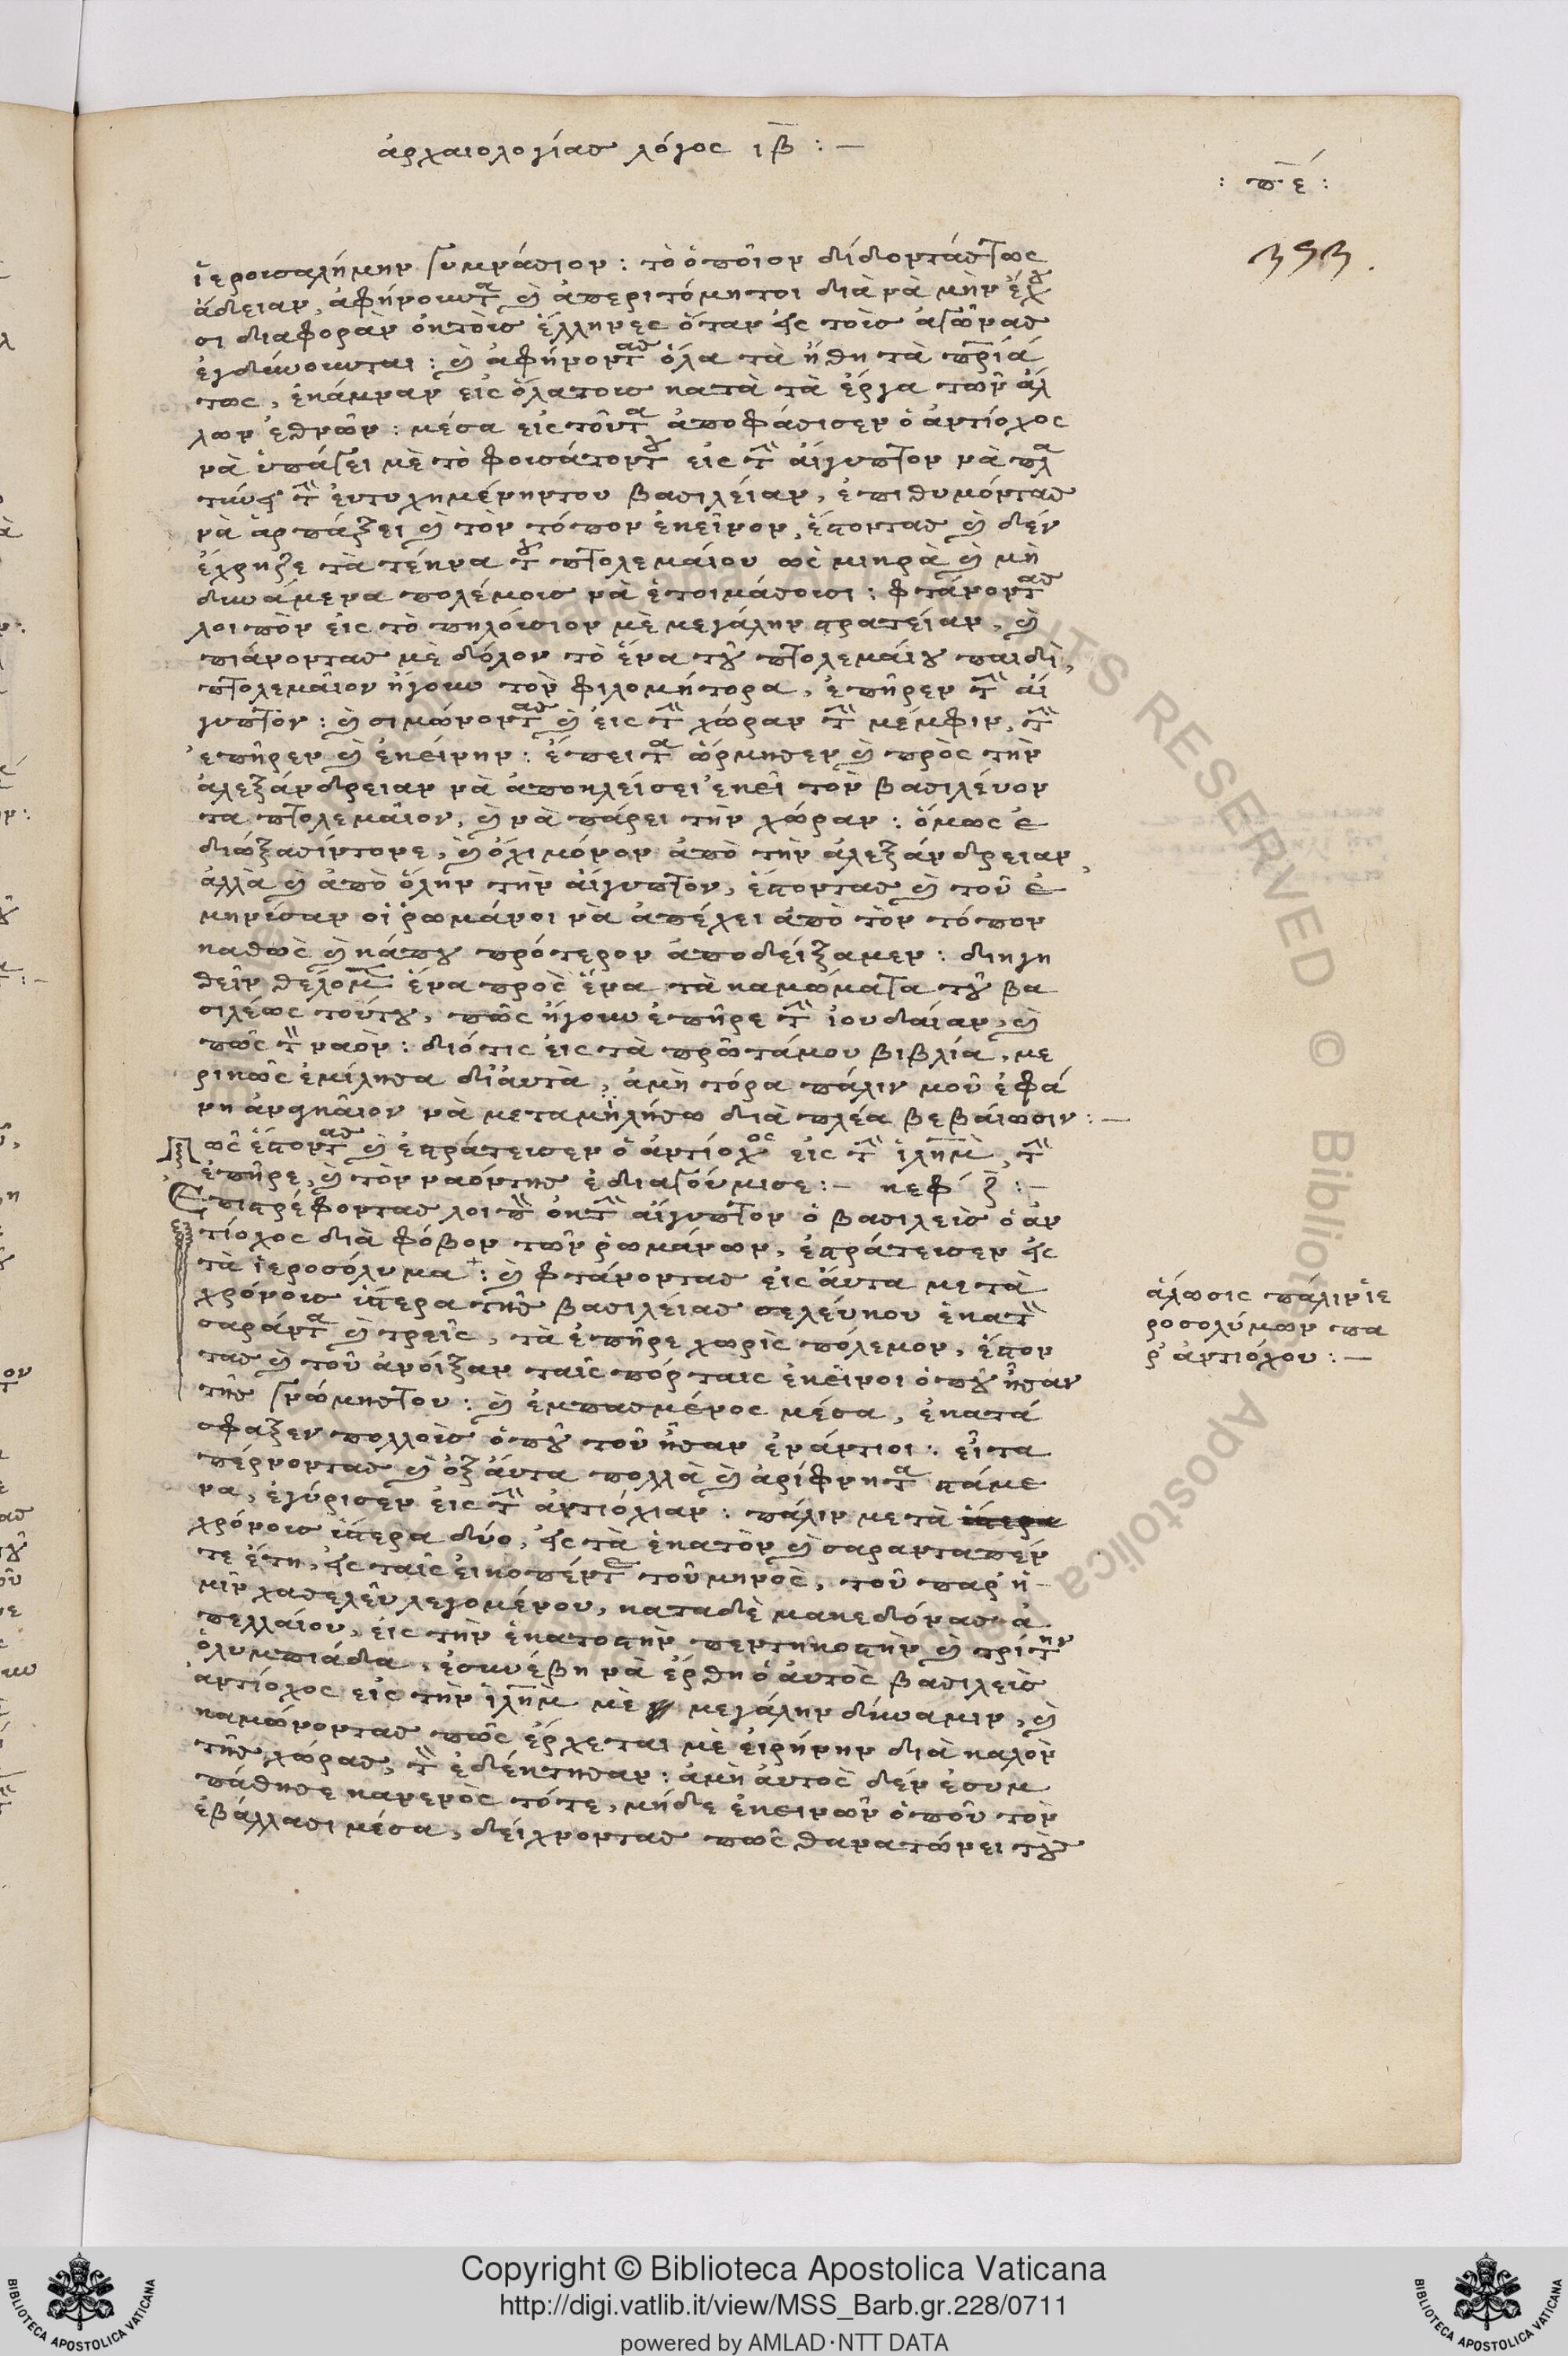 ἀρχαιολογίας λόγος ιβ : —
: πέ :
353.
ἱερουσαλήμην γυμνάσιον : τὸ ὁποῖον δίδοντάς τως
ἄδειαν, ἀφήνουντα καὶ ἀπεριτόμητοι διὰ νὰ μὴν ἔχου
σι διαφορὰν ὀκτοὶς ἕλληνες ὅταν εἰς τοὶς ἀγῶνας
ἐγδύνουνται : καὶ ἀφήνοντας ὅλα τὰ ἤθη τὰ πατριά
τως, ἐκάμναν εἰς ὅλατους κατὰ τὰ ἔργα τῶν ἀλ
λων ἐθνῶν : μέσα εἰς τοῦτα ἀποφάσισεν ὁ ἀντίοχος
νὰ ὑπάγει μὲ τὸ φουσάτοντου εἰς τὴν αἴγυπτον νὰ πλα
τύνει τὴν ἐντυχημένηντου βασιλείαν, ἐπιθυμόντας
νὰ ἁρπάξει καὶ τὸν τόπον ἐκεῖνον, ἔστοντας καὶ δὲν
ἔχρηζε τὰ τέκνα τοῦ πτολεμαίου ὡς μικρὰ καὶ μὴ
δυνάμενα πολέμους νὰ ἑτοιμάσουσι : φτάνοντας
λοιπὸν εἰς τὸ πηλούσιον μὲ μεγάλην στρατείαν, καὶ
πιάνοντας μὲ δόλον τὸ ἕνα τοῦ πτολεμαίου παιδὶ,
πτολεμαῖον ἤγουν τὸν φιλομήτορα, ἐπῆρεν τὴν αἴ
γυπτον : καὶ σιμώνοντας καὶ εἰς τὴν χώραν τὴν μέμφιν, τὴν
ἐπῆρεν καὶ ἐκείνην : ἔπειτα ὥρμησεν καὶ πρὸς τὴν
ἀλεξάνδρειαν νὰ ἀποκλείσει ἐκεῖ τὸν βασιλεύον
τα πτολεμαῖον, καὶ νὰ πάρει τὴν χώραν : ὅμως ἐ
διώξασίντονε, καὶ ὄχι μόνον ἀπὸ τὴν ἀλεξάνδρειαν,
ἀλλὰ καὶ ἀπὸ ὅλην τὴν αἴγυπτον, ἔστοντας καὶ τοῦ ἐ
μηνύσαν οἱ ῥωμάνοι νὰ ἀπέχει ἀπὸ τὸν τόπον
καθὼς καὶ κάπου πρότερον ἀποδείξαμεν : διηγη
θεῖν θέλομεν ἕνα πρὸς ἕνα τὰ καμώματα τοῦ βα
σιλέως τούτου, πῶς ἤγουν ἐπῆρε τὴν ἰουδαίαν, καὶ
πῶς τὸν ναὸν : διότις εἰς τὰ πρῶτάμου βιβλία, με
ρικῶς ἐμίλησα δι᾽ αὐτὰ, ἀμὴ τόρα πάλιν μοῦ ἐφά
νη ἀναγκαῖον νὰ μεταμηλήσω διὰ πλέα βεβαίωσιν : —
Πως ἔστοντας καὶ ἐστράτευσεν ὁ ἀντίοχος εἰς τὴν ἱλημ, τὴν
ἐπῆρε, καὶ τὸν ναόντης ἐδιαγούμισε : — κεφ ζ : —
Επιστρέφοντας λοιπὸν ὀκτὴν αἴγυπτον ὁ βασιλεὺς ὁ ἀν
τίοχος διὰ φόβον τῶν ῥωμάνων, ἐστράτευσεν εἰς
τὰ ἱεροσόλυμα + : καὶ φτάνοντας εἰς αὐτα μετὰ
χρόνους ὕστερα τῆς βασιλείας σελεύκου ἑκατὸν
σαράντα καὶ τρεῖς, τὰ ἐπῆρε χωρὶς πόλεμον, ἔστον
τας καὶ τοῦ ἀνοίξαν ταῖς πόρταις ἐκεῖνοι ὁποῦ ἦσαν
τῆς γνώμηςτου : καὶ ἐμπασμένος μέσα, ἐκατά
σφαξεν πολλοὺς ὁποῦ τοῦ ἦσαν ἐνάντιοι : εἶτα
πέρνοντας καὶ ὀξ αὐτα πολλὰ καὶ ἀρίφνητα στάμε
να, ἐγύρισεν εἰς τὴν ἀντιόχιαν : πάλιν μετὰ
χρόνους ὕστερα δύο, εἰς τὰ ἑκατὸν καὶ σαρανταπέν
τε ἔτη, εἰς ταῖς εἰκοπέντε τοῦ μηνὸς, τοῦ παρ᾽ ἡ –
μῖν χασελεῦ λεγομένου, κατὰ δὲ μακεδόνας ἀ
πελλαίου, εἰς τὴν ἑκατοστὴν πεντηκοστὴν καὶ τρίτην
ὀλυμπιάδα, ἐσυνέβη νὰ ἔρθη ὁ αὐτὸς βασιλεὺς
ἀντίοχος εἰς τὴν ἱλημ μὲ μεγάλην δύναμιν, καὶ
καμώνοντας πῶς ἔρχεται μὲ εἰρήνην διὰ καλὸν
τῆς χώρας, τὸν ἐδέκτησαν : ἀμὴ αὐτὸς δὲν ἐσυμ
πάθησε κανενὸς τότε, μήδε ἐκεινῶν ὁποῦ τὸν
ἐβάλλασι μέσα, δείχνοντας πῶς θανατώνει τοὺς
ἁλωσις πάλιν ἱε
ροσολύμων πα
ρ᾽ ἀντιόχου : —
Copyright © Biblioteca Apostolica Vaticana
http://digi.vatlib.it/view/MSS_Barb.gr.228/0711
powered by AMLAD·NTT DATA